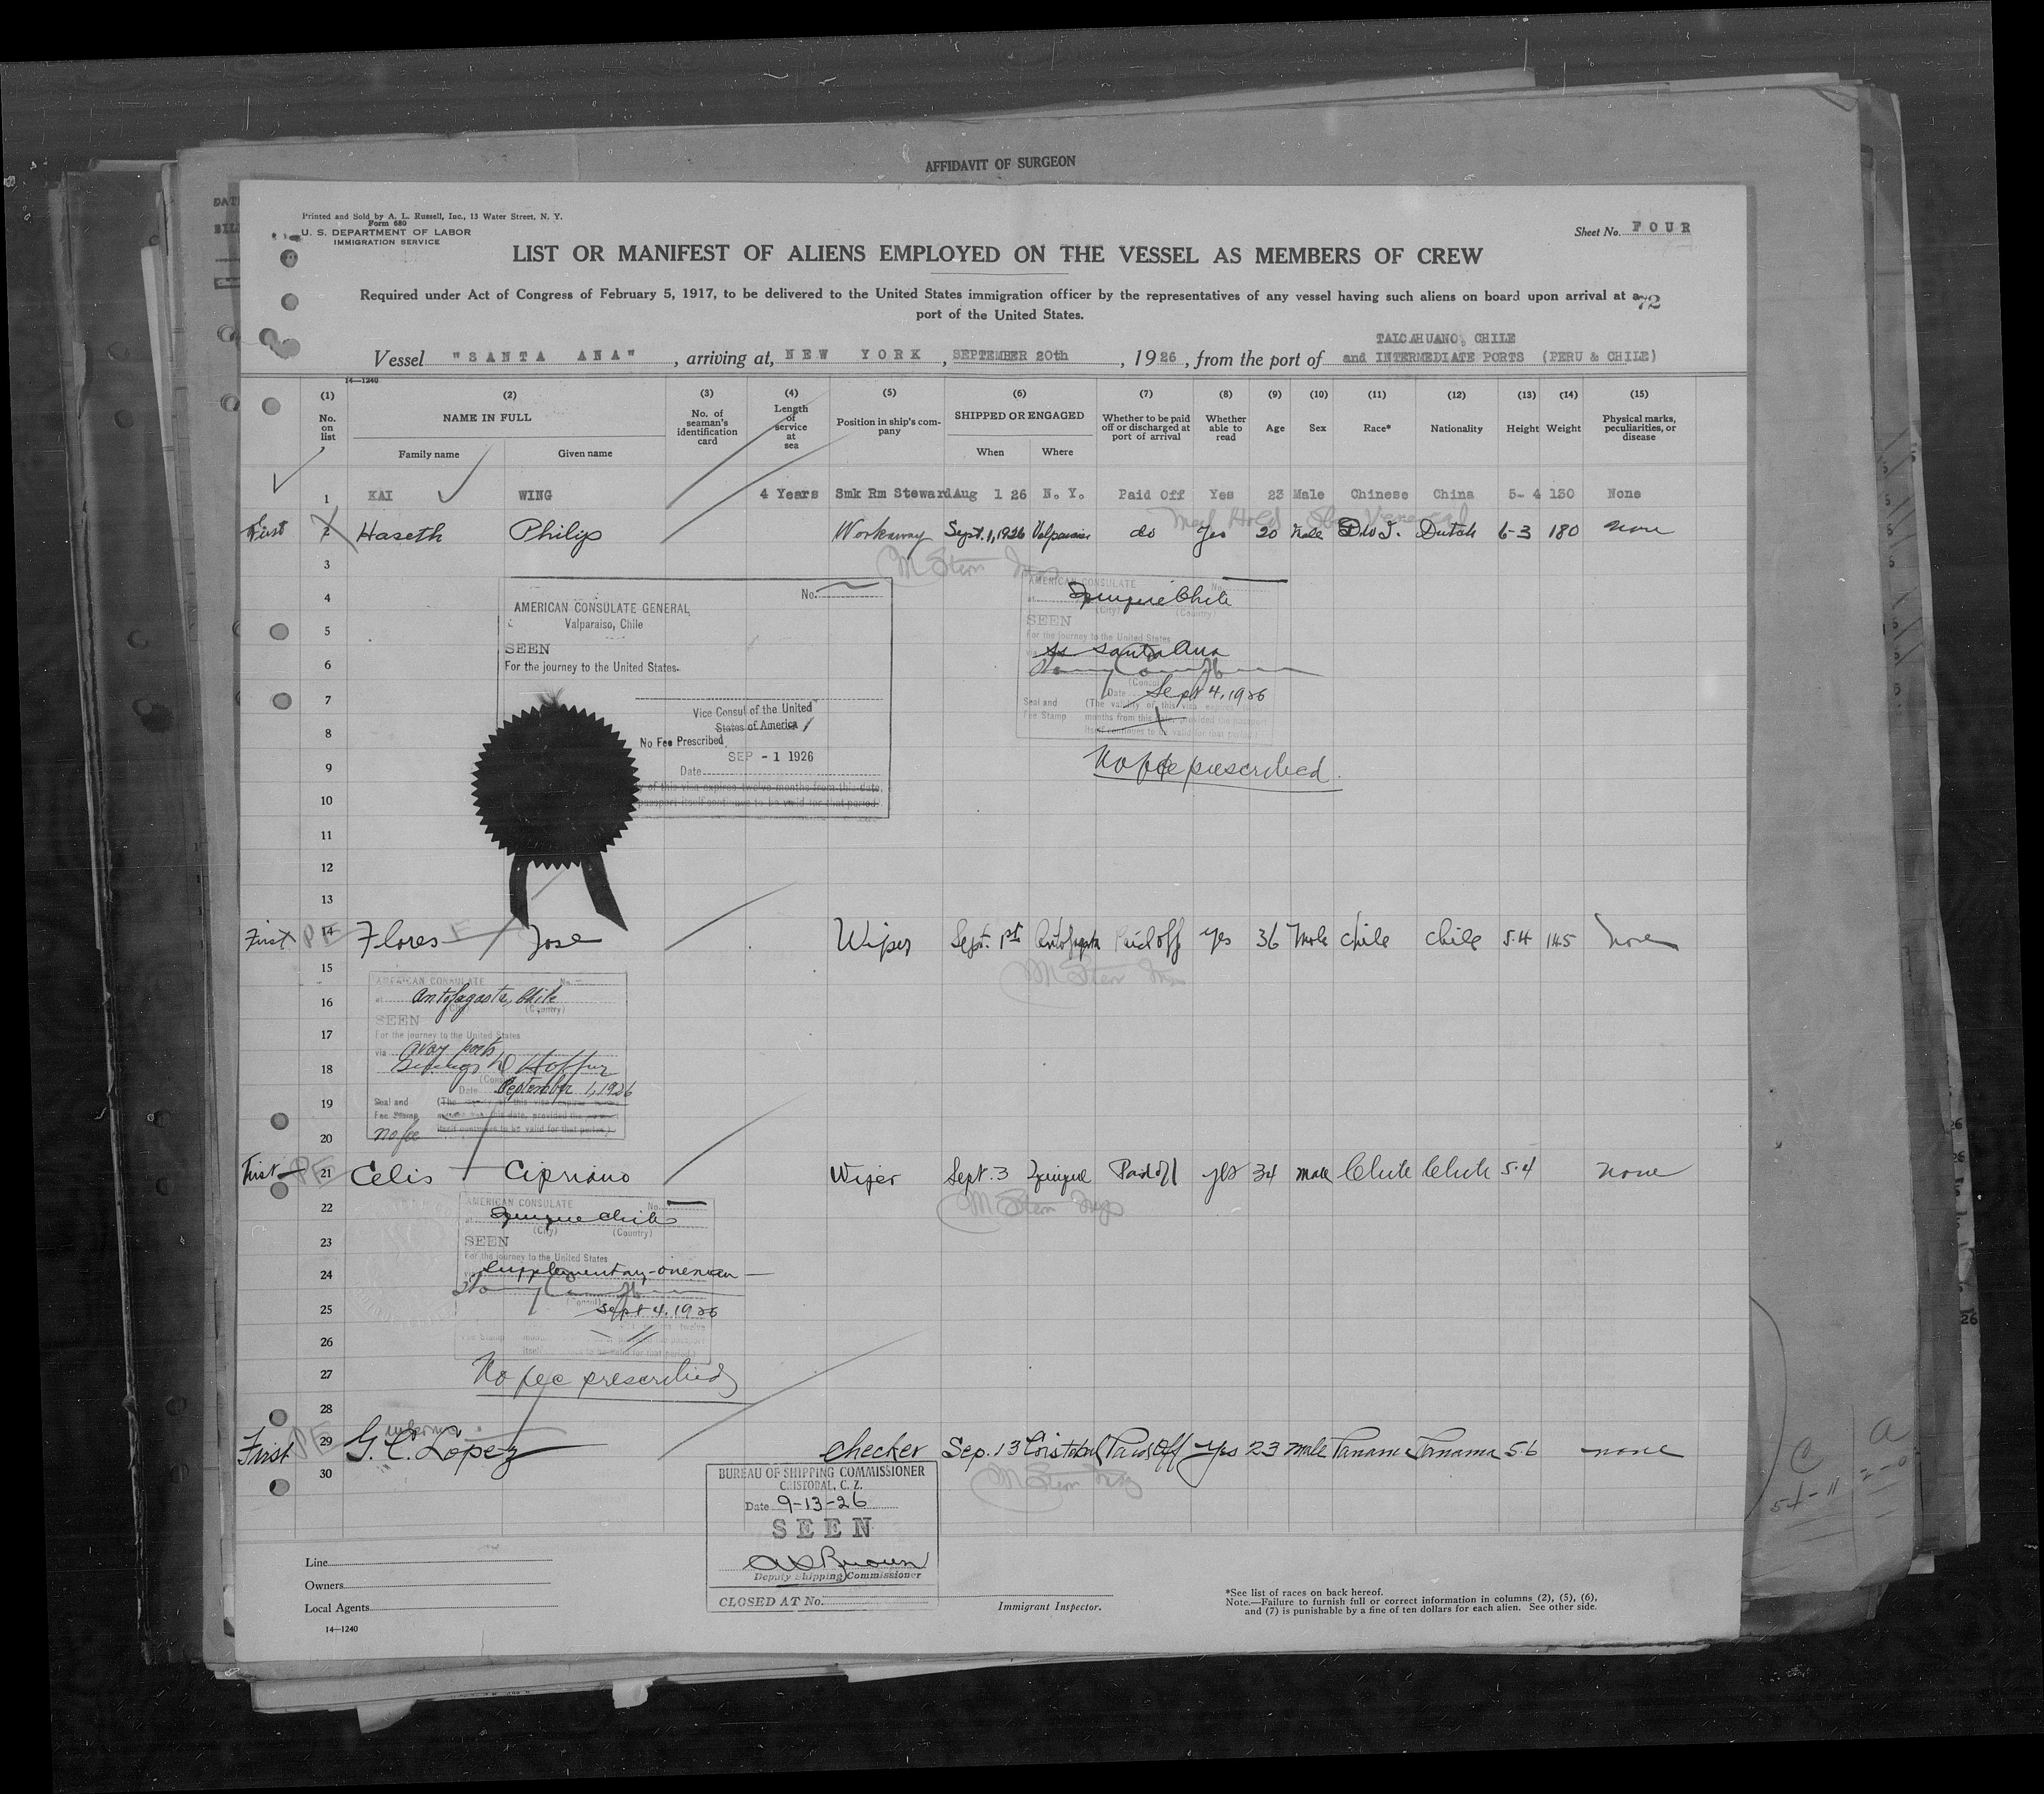 AFFIDAVIT OF SURGEON
Printed and Sold by A. L. Russell, Inc., 13 Water Street, N. Y.
Form 680
U. S. DEPARTMENT OF LABOR
IMMIGRATION SERVICE
Sheet No. FOUR
LIST OR MANIFEST OF ALIENS EMPLOYED ON THE VESSEL AS MEMBERS OF CREW
Required under Act of Congress of February 5, 1917, to be delivered to the United States immigration officer by the representatives of any vessel having such aliens on board upon arrival at a
port of the United States.
72
TALCAHUANO, CHILE
Vessel "SANTA ANA", arriving at, NEW YORK, SEPTEMBER 20th, 1926, from the port of and INTERMEDIATE PORTS (PERU & CHILE)
14—1240
(1) (2) (3) (4) (5) (6) (7) (8) (9) (10) (11) (12) (13) (14) (15)
No. on list
NAME IN FULL
Family name
Given name
No. of seaman's identification card
Length of service at sea
Position in ship's company
SHIPPED OR ENGAGED
When
Where
Whether to be paid off or discharged at port of arrival
Whether able to read
Age
Sex
Race*
Nationality
Height
Weight
Physical marks, peculiarities, or disease
1 KAI WING 4 Years Smk Rm Steward Aug 1 26 N. Y. Paid Off Yes 23 Male Chinese China 5- 4 130 None
Med Hold
First 2 Haseth Philip Workaway Sept. 1, 1926 Valparaiso do Yes 20 Male D.W.I. Dutch 6-3 180 none
M Stern Insp
3
4
5
6
7
8
9
10
11
12
13
AMERICAN CONSULATE GENERAL,
Valparaiso, Chile
No.
SEEN
For the journey to the United States.
Vice Consul of the United
States of America
No Fee Prescribed
SEP - 1 1926
Date
of this visa expires twelve months from this date,
passport itself continues to be valid for that period.
AMERICAN CONSULATE
No.
at Iquique Chile
(City) (Country)
SEEN
For the journey to the United States
via SS Santa Ana
(Consul)
Date Sept 4, 1926
Seal and (The validity of this visa expires
Fee Stamp months from this date, provided the passport
itself continues to be valid for that period.)
No fee prescribed.
First PE 14 Flores Jose Wiper Sept. 1st Antofagasta Paid off yes 36 Male Chile Chile 5.4 145 None
M Stern Insp
15
16
17
18
19
20
AMERICAN CONSULATE
No.
at Antofagasta, Chile
(Country)
SEEN
For the journey to the United States
via way ports
(Consul)
Date September 1, 1926
Seal and
Fee Stamp this date, provided the
itself continues to be valid for that period.)
No fee
First PE 21 Celis Cipriano Wiper Sept. 3 Iquique Paid off yes 34 Male Chile Chile 5.4 none
M Stern Insp
22
23
24
25
26
27
28
AMERICAN CONSULATE
No.
at Iquique Chile
(City) (Country)
SEEN
For the journey to the United States
via Supplementary-one man
(Consul)
Sept 4, 1926
itself continues to be valid for that period.)
No fee prescribed
First PE 29 G. C. Lopez Checker Sep. 13 Cristobal Paid Off Yes 23 Male Panama Panama 5.6 none
M Stern Insp
30
BUREAU OF SHIPPING COMMISSIONER
CRISTOBAL, C. Z.
Date 9-13-26
SEEN
Deputy Shipping Commissioner
CLOSED AT No.
Line
Owners
Local Agents
14—1240
Immigrant Inspector.
*See list of races on back hereof.
Note.—Failure to furnish full or correct information in columns (2), (5), (6),
and (7) is punishable by a fine of ten dollars for each alien. See other side.